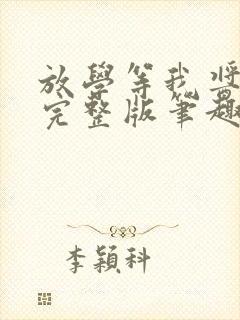 放學等我將
完整版筆趣
李穎科